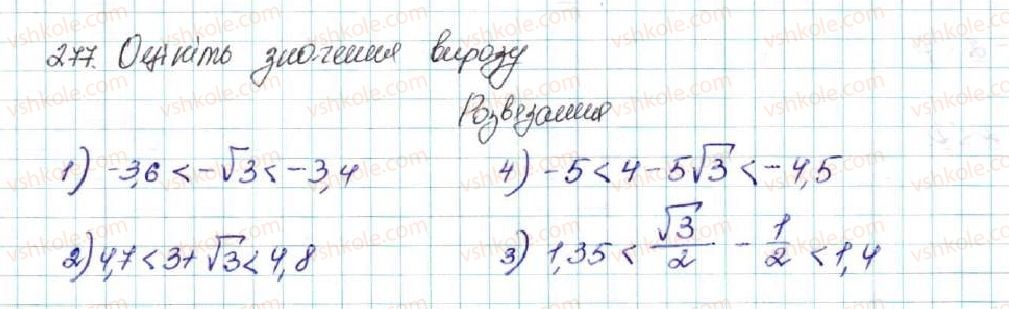 277. Оцініть значення виразу
Розв'язання
1) -3,6 < -√3 < -3,4
4) -5 < 4 - 5√3 < -4,5
2) 4,7 < 3 + √3 < 4,8
3) 1,35 < √3/2 - 1/2 < 1,4